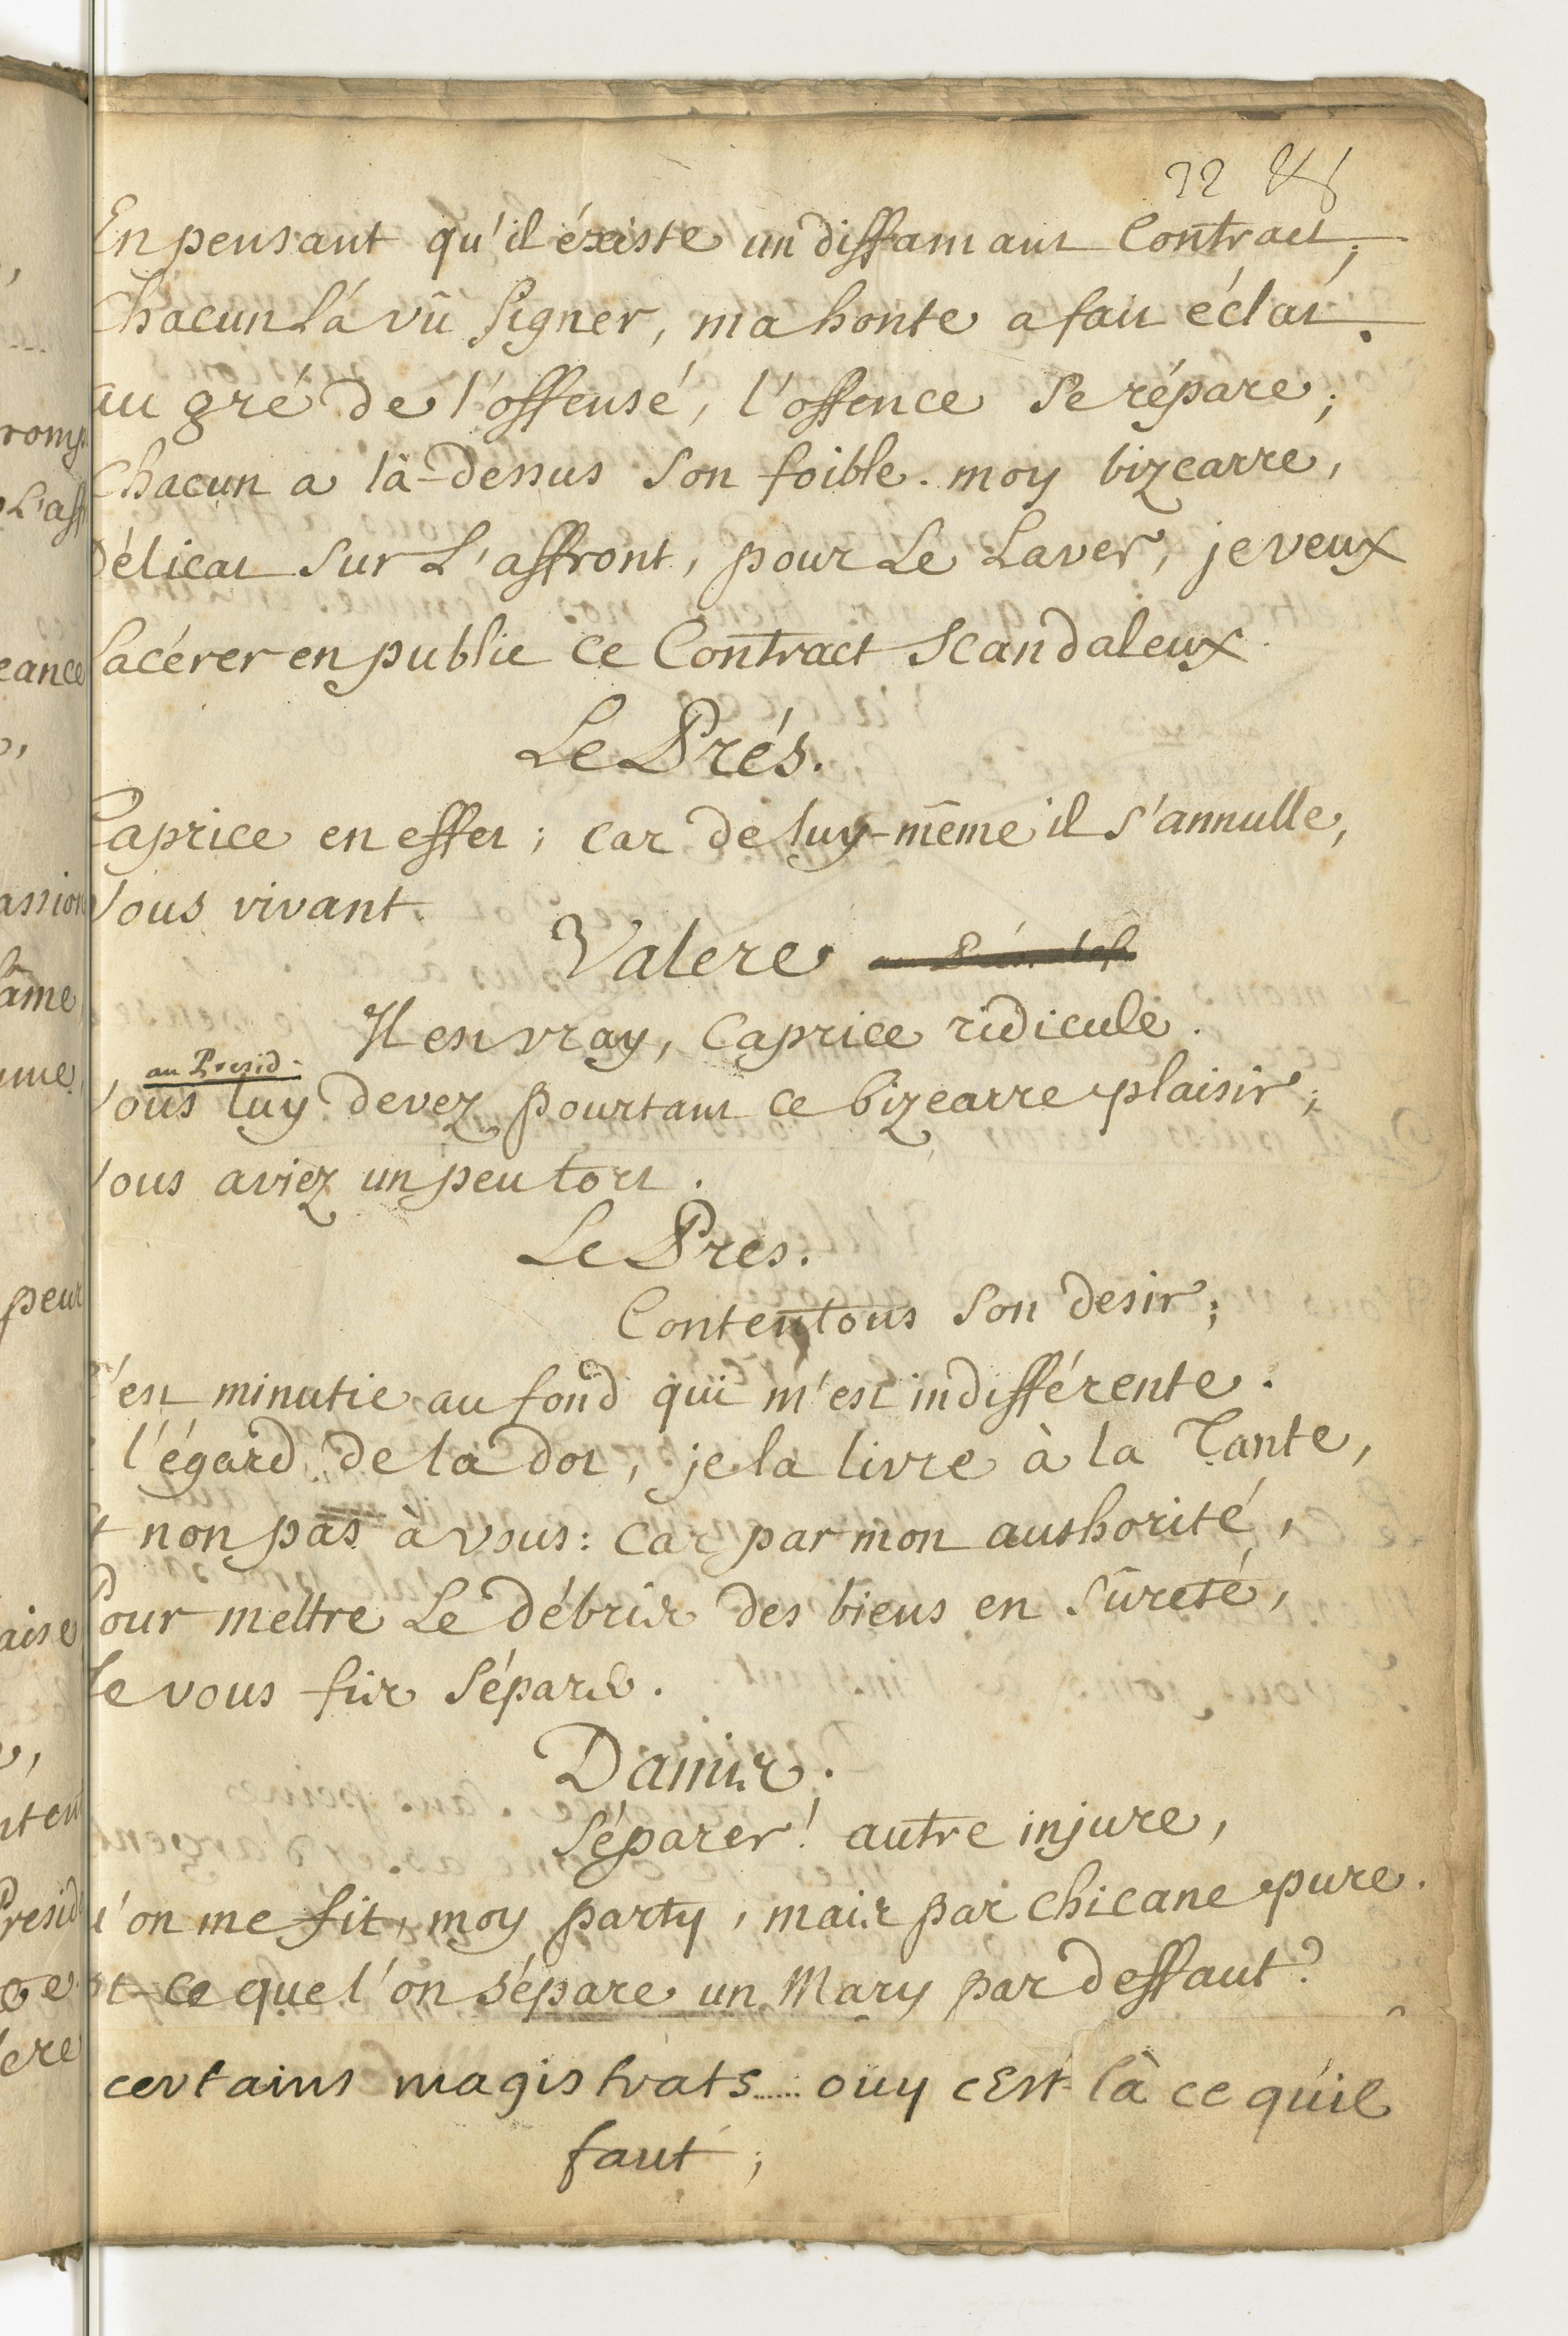 22
En pensant qu'il éxiste un diffamant Contract;
Chacun l'a vû Signer, ma honte a fait éclat.
au gré de l'offensé, l'offence Se répare;
Chacun a là-dessus Son foible. moy bizearre,
Délicat Sur L'affront, pour Le Laver, je veux
Lacérer en public Ce Contract Scandaleux.
Le Prés.
Caprice en effet; Car de luy-même il s'annulle,
Vous vivant.
Valere
Il en vray, Caprice ridicule.
au Presid.
Vous luy devez pourtant ce bizearre plaisir;
Vous aviez un peu tort.
Le Pres.
Contentons Son desir;
C'est minutie au fond qui m'est indifférente.
l'égard de la dot, je la livre à la Tante,
t non pas à vous: Car par mon authorité,
Pour mettre Le débris des biens en Sûreté,
Je vous fis Séparer.
Damis.
Séparer! autre injure,
u'on me fit, moy party, mais par chicane pure.
st-ce que l'on sépare un Mary par deffaut?
certains magistrats...... ouy cEst là ce qu'il
faut;
romp
L'aff
eance
assion
âme
peur
aise
nten
Presid
ere